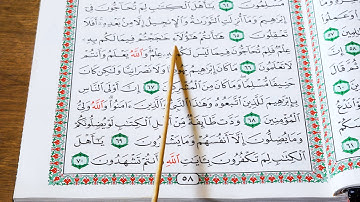 ٱلْمُشْرِكِينَ ٦٤ يَـٰٓأَهْلَ ٱلْكِتَـٰبِ لِمَ تُحَآجُّونَ فِىٓ
إِبْرَٰهِيمَ وَمَآ أُنزِلَتِ ٱلتَّوْرَىٰةُ وَٱلْإِنجِيلُ إِلَّا مِنۢ بَعْدِهِۦٓ أَفَلَا
تَعْقِلُونَ ٦٥ هَـٰٓأَنتُمْ هَـٰٓؤُلَآءِ حَـٰجَجْتُمْ فِيمَا لَكُم بِهِۦ
عِلْمٌ فَلِمَ تُحَآجُّونَ فِيمَا لَيْسَ لَكُم بِهِۦ عِلْمٌ وَٱللَّهُ يَعْلَمُ وَأَنتُمْ
لَا تَعْلَمُونَ ٦٦ مَا كَانَ إِبْرَٰهِيمُ يَهُودِيًّا وَلَا نَصْرَانِيًّا وَلَـٰكِن كَانَ
حَنِيفًا مُّسْلِمًا وَمَا كَانَ مِنَ ٱلْمُشْرِكِينَ ٦٧ إِنَّ أَوْلَى ٱلنَّاسِ
بِإِبْرَٰهِيمَ لَلَّذِينَ ٱتَّبَعُوهُ وَهَـٰذَا ٱلنَّبِىُّ وَٱلَّذِينَ ءَامَنُوا۟ وَٱللَّهُ وَلِىُّ
ٱلْمُؤْمِنِينَ ٦٨ وَدَّت طَّآئِفَةٌ مِّنْ أَهْلِ ٱلْكِتَـٰبِ لَوْ يُضِلُّونَكُمْ
وَمَا يُضِلُّونَ إِلَّآ أَنفُسَهُمْ وَمَا يَشْعُرُونَ ٦٩ يَـٰٓأَهْلَ
ٱلْكِتَـٰبِ لِمَ تَكْفُرُونَ بِـَٔايَـٰتِ ٱللَّهِ وَأَنتُمْ تَشْهَدُونَ ٧٠
٥٨